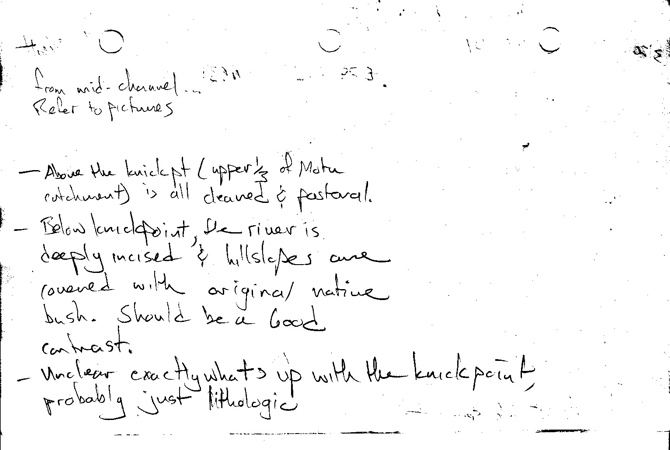 from mid-channel...
Refer to pictures
— Above the knickpt (upper ½ of Motu
catchment) is all cleared & pastoral.
— Below knickpoint, the river is
deeply incised & hillslopes are
covered with original native
bush. Should be a Good
contrast.
— Unclear exactly whats up with the knickpoint,
probably just lithologic